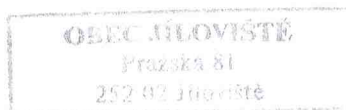 OBEC JÍLOVIŠTĚ
Pražská 81
252 02 Jíloviště